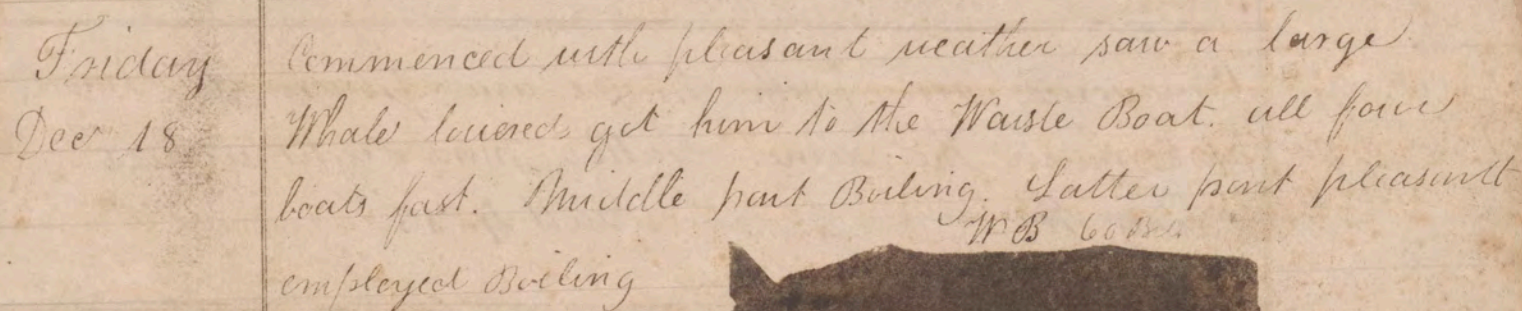 Friday Commenced with pleasant weather saw a large
Dec 18 Whale lowered got him to the Waiste Boat. all four
boats fast. Middle part Boiling. Latter part pleasant
W B 60 Bbls
employed Boiling